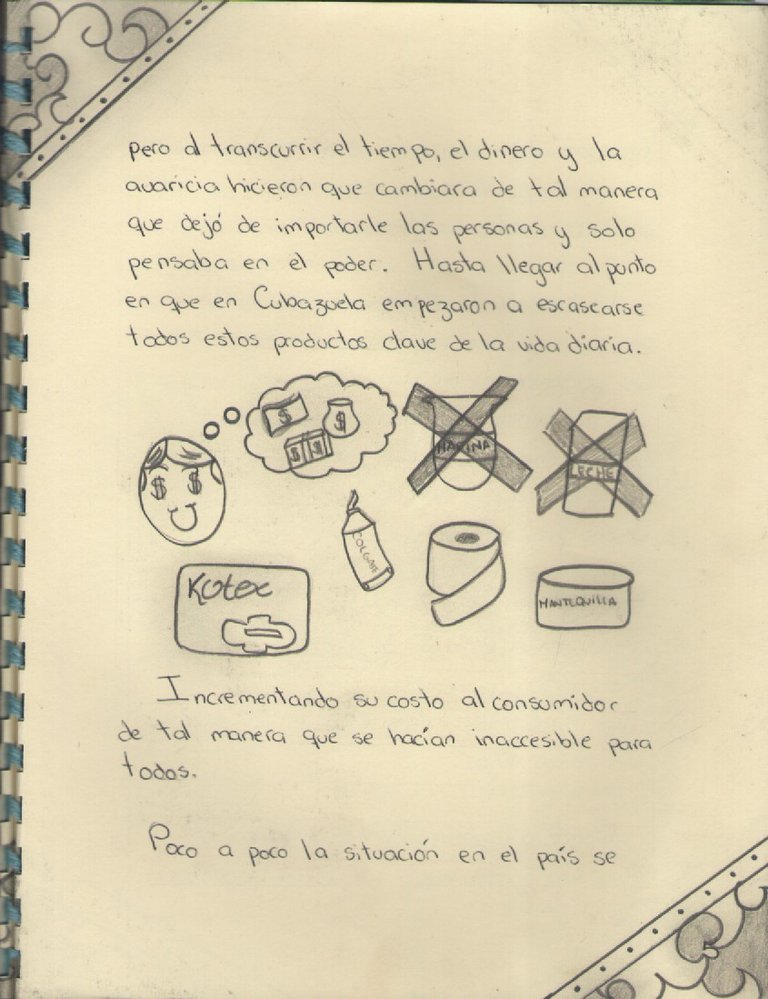 pero al transcurrir el tiempo, el dinero y la
avaricia hicieron que cambiara de tal manera
que dejó de importarle las personas y solo
pensaba en el poder. Hasta llegar al punto
en que en Cubazuela empezaron a escascarse
todos estos productos clave de la vida diaria.
$
$
$ $
$ $
HARINA
LECHE
COLGATE
Kotex
MANTEQUILLA
Incrementando su costo al consumidor
de tal manera que se hacían inaccesible para
todos.
Poco a poco la situación en el país se